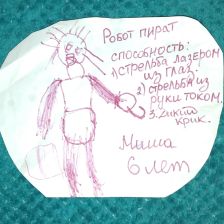 Робот пират
способность:
1) стрельба лазером
из глаз.
2) стрельба из
руки током.
3. дикий
крик.
Миша
6 лет